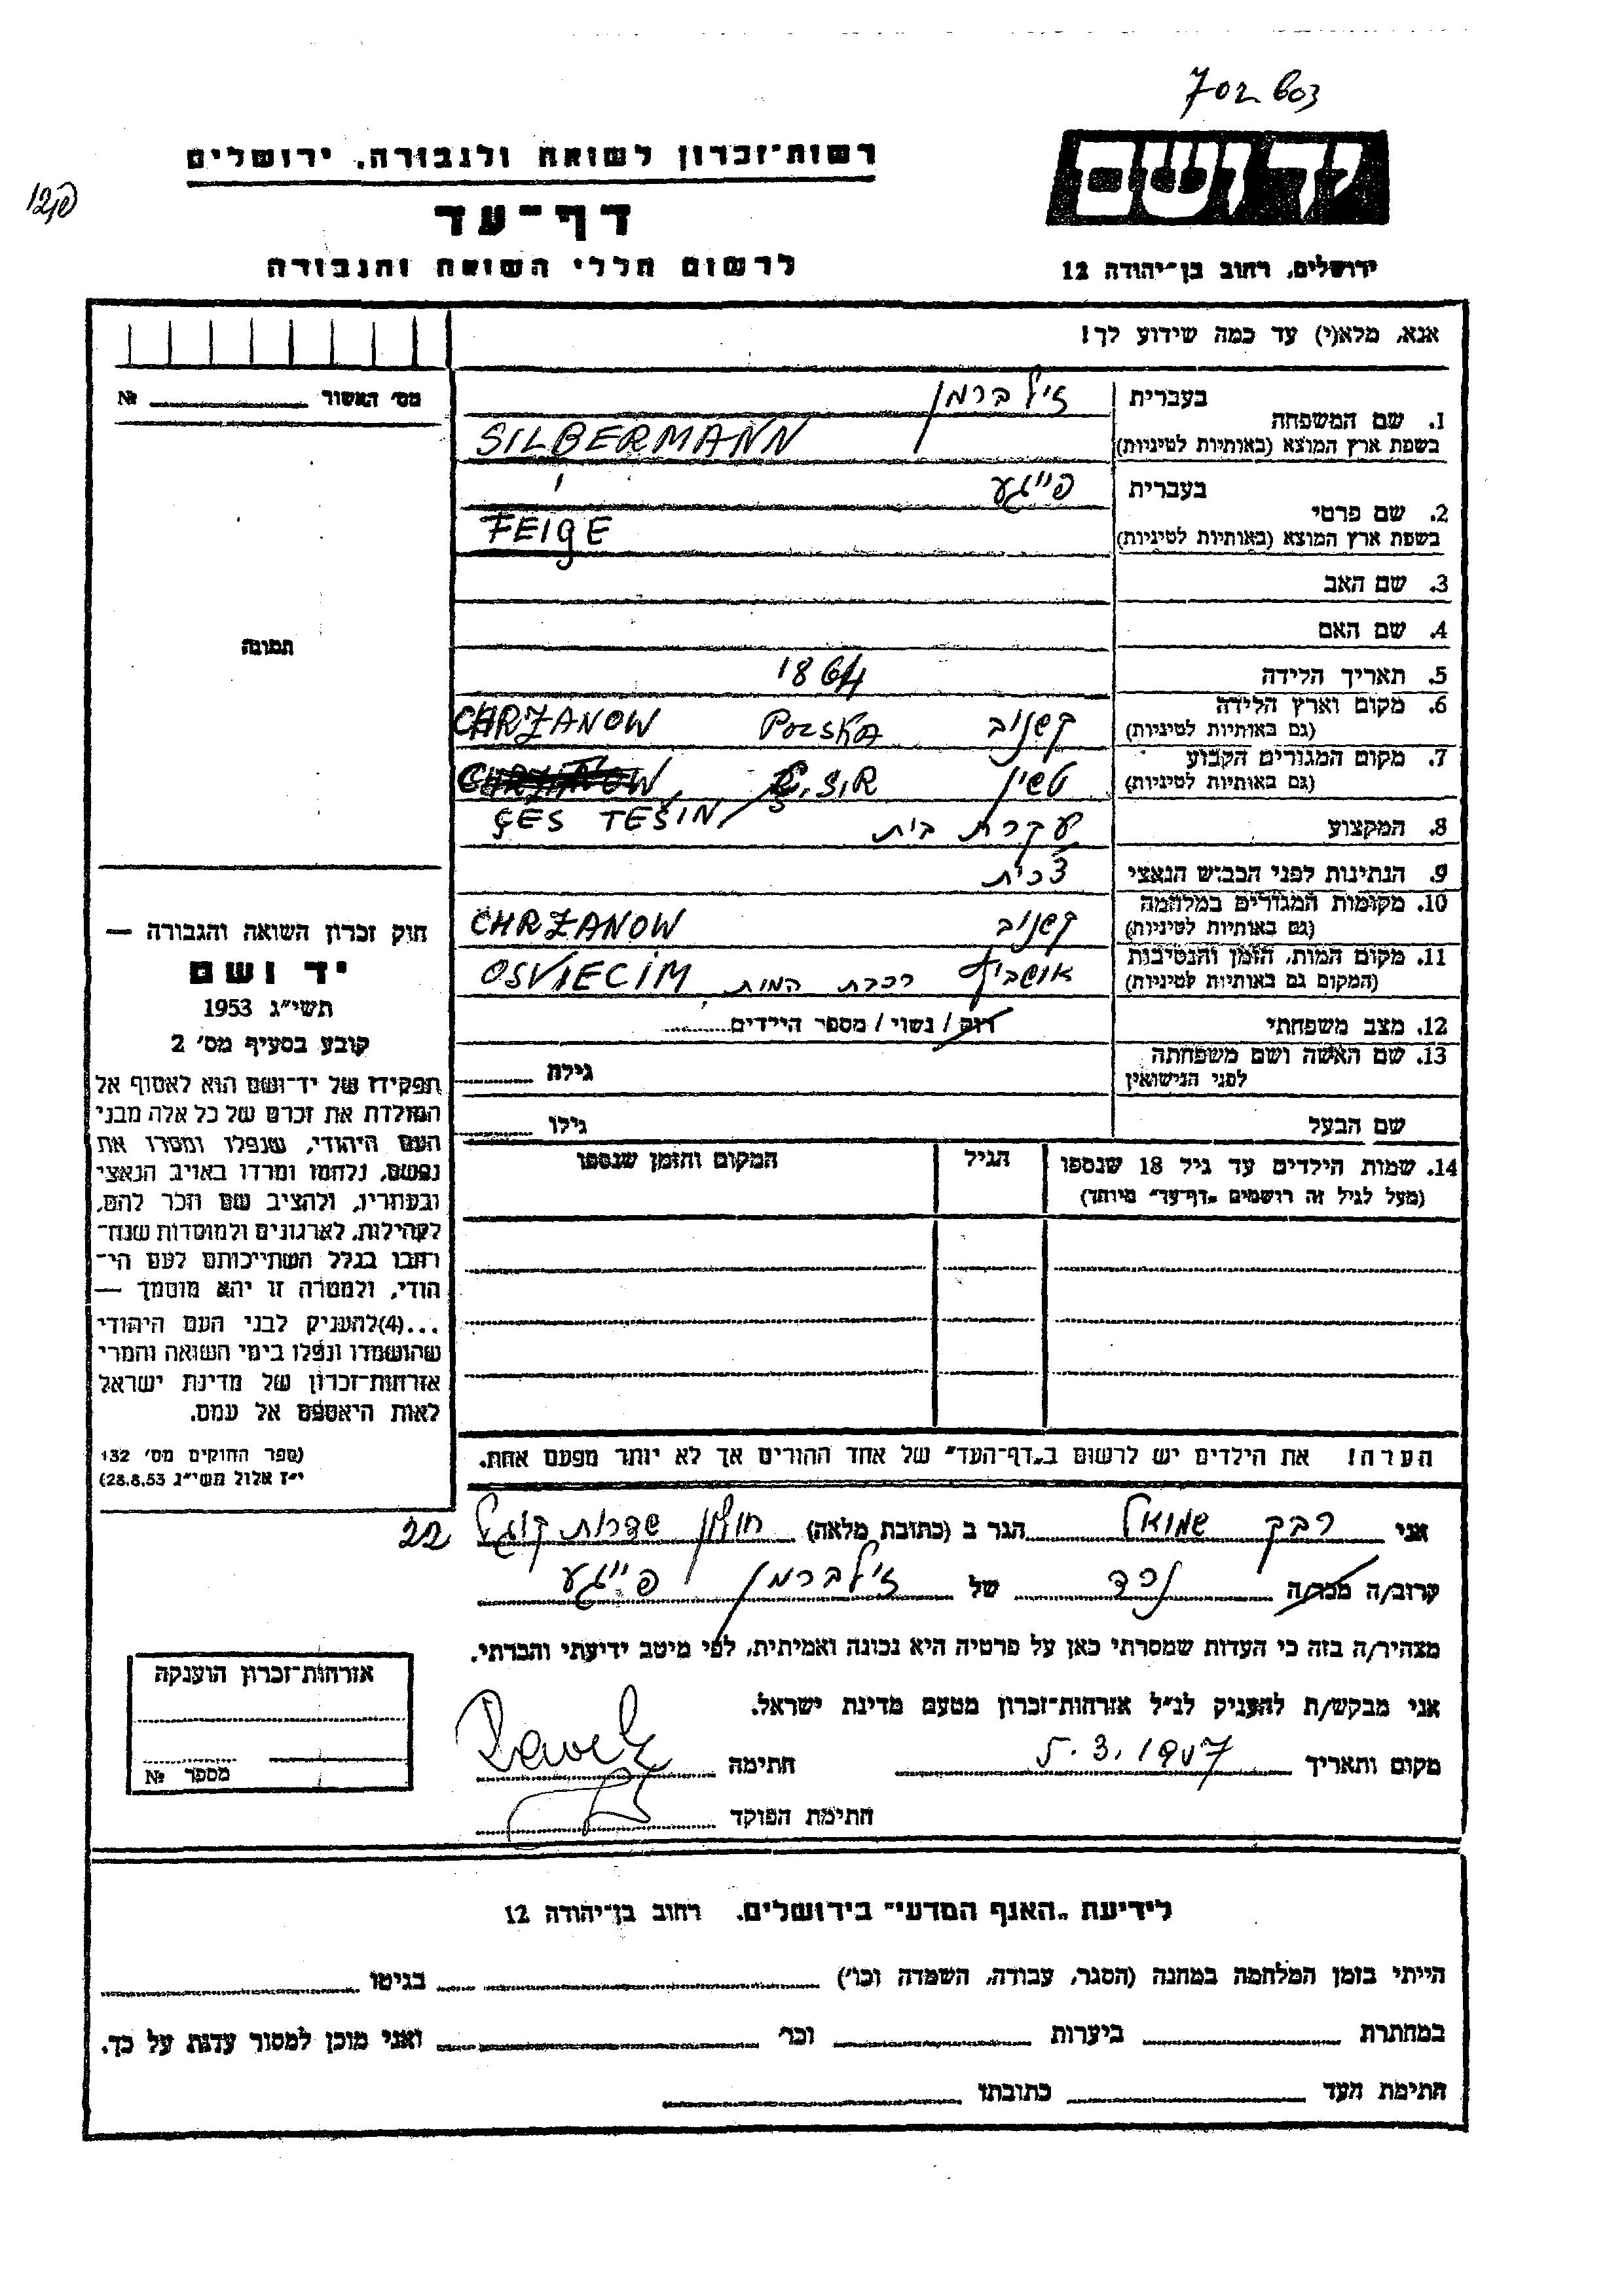 702603
רשות־זכרון לשואה ולגבורה, ירושלים
יד ושם
דף־עד
לרשום חללי השואה והגבורה
ירושלים, רחוב בן־יהודה 12
אנא, מלא(י) עד כמה שידוע לך!
מס׳ האשור № 
1. שם המשפחה
בעברית זילברמן
בשפת ארץ המוצא (באותיות לטיניות) SILBERMANN
2. שם פרטי
בעברית פייגע
בשפת ארץ המוצא (באותיות לטיניות) FEIGE
3. שם האב
4. שם האם
תמונה
5. תאריך הלידה 1864
6. מקום וארץ הלידה קשנוב POLSKA CHRZANOW
(גם באותיות לטיניות)
7. מקום המגורים הקבוע טשין Č.S.R CHRZANOW
(גם באותיות לטיניות) ČES TEŠIN
8. המקצוע עקרת בית
9. הנתינות לפני הכבוש הנאצי צ׳כית
10. מקומות המגורים במלחמה קשנוב CHRZANOW
(גם באותיות לטיניות)
11. מקום המות, הזמן והנסיבות אושביץ רכבת המות, OSVIECIM
(המקום גם באותיות לטיניות)
12. מצב משפחתי רווק / נשוי / מספר הילדים
13. שם האשה ושם משפחתה גילה
לפני הנישואין
שם הבעל גילו
14. שמות הילדים עד גיל 18 שנספו הגיל המקום והזמן שנספו
(מעל לגיל זה רושמים „דף־עד״ מיוחד)
חוק זכרון השואה והגבורה —
יד ושם
תשי״ג 1953
קובע בסעיף מס׳ 2
תפקידו של יד־ושם הוא לאסוף אל
המולדת את זכרם של כל אלה מבני
העם היהודי, שנפלו ומסרו את
נפשם, נלחמו ומרדו באויב הנאצי
ובעוזריו, ולהציב שם וזכר להם,
לקהילות, לארגונים ולמוסדות שנח־
רבו בגלל השתייכותם לעם הי־
הודי, ולמטרה זו יהא מוסמך —
...(4)להעניק לבני העם היהודי
שהושמדו ונפלו בימי השואה והמרי
אזרחות־זכרון של מדינת ישראל
לאות היאספם אל עמם.
(ספר החוקים מס׳ 132
י״ז אלול תשי״ג 28.8.53)
הערה! את הילדים יש לרשום ב„דף־העד״ של אחד ההורים אך לא יותר מפעם אחת.
אני רבק שמואל הגר ב (כתובת מלאה) חולון שדרות קוגל 22
קרוב/ה מכר/ה נכד של זילברמן פייגע
מצהיר/ה בזה כי העדות שמסרתי כאן על פרטיה היא נכונה ואמיתית, לפי מיטב ידיעתי והכרתי.
אני מבקש/ת להעניק לנ״ל אזרחות־זכרון מטעם מדינת ישראל.
מקום ותאריך חתימה
חתימת הפוקד
אזרחות־זכרון הוענקה
מספר №
לידיעת „האגף המדעי״ בירושלים, רחוב בן־יהודה 12
הייתי בזמן המלחמה במחנה (הסגר, עבודה, השמדה וכו׳) בגיטו
במחתרת ביערות וכו׳ ואני מוכן למסור עדות על כך.
חתימת העד כתובתו